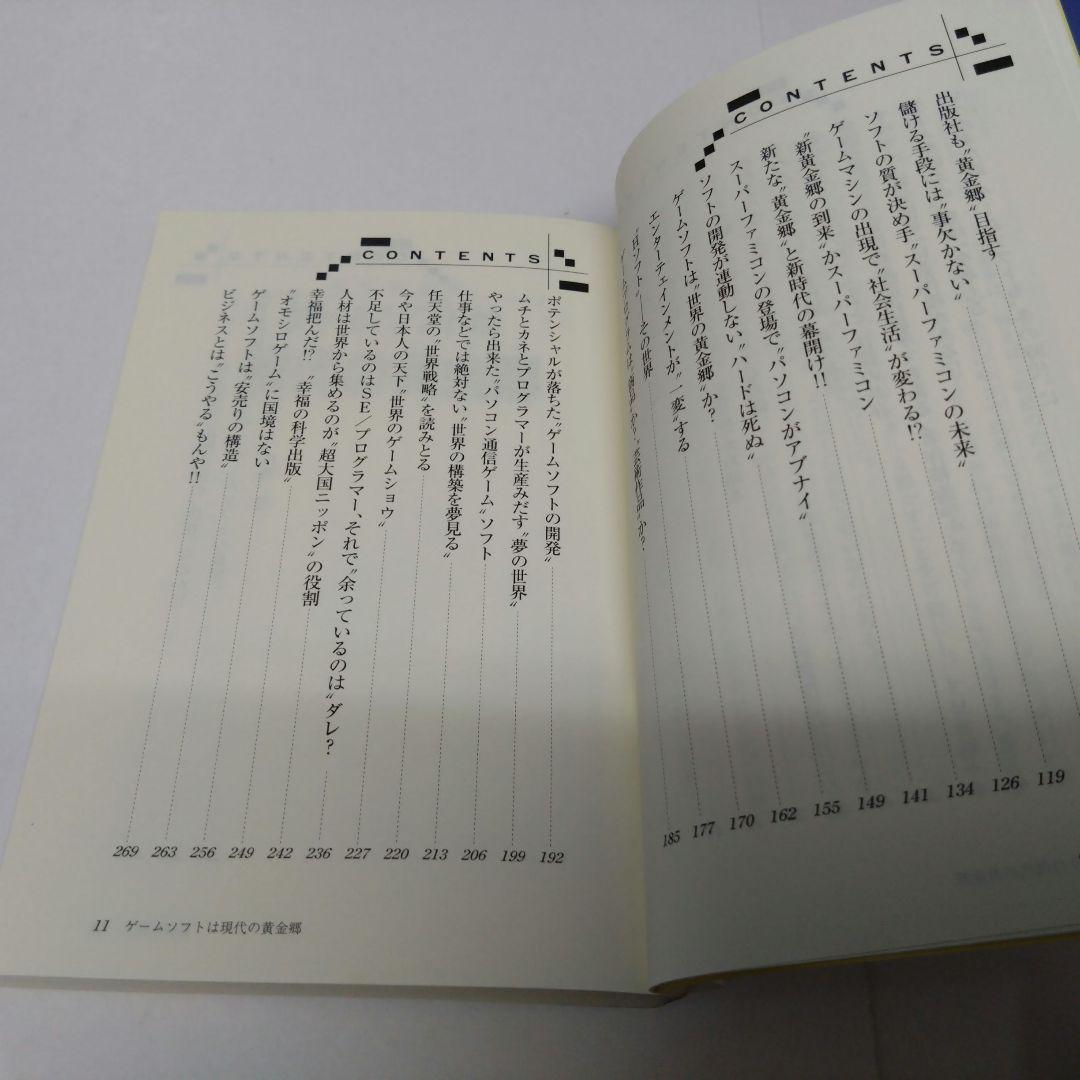 CONTENTS
出版社も〝黄金郷〟目指す
儲ける手段には〝事欠かない〟
ソフトの質が決め手〝スーパーファミコンの未来〟
ゲームマシンの出現で〝社会生活〟が変わる!?
〝新黄金郷の到来〟かスーパーファミコン
新たな〝黄金郷〟と新時代の幕開け!!
スーパーファミコンの登場で〝パソコンがアブナイ〟
ソフトの開発が連動しない〝ハードは死ぬ〟
ゲームソフトは〝世界の黄金郷〟か?
エンターテインメントが〝一変〟する
〝Hソフト〟―その世界
か?〝芸術作品〟か?
119
126
134
141
149
155
162
170
177
185
CONTENTS
ポテンシャルが落ちた〝ゲームソフトの開発〟 192
ムチとカネとプログラマーが生産みだす〝夢の世界〟 199
やったら出来た〝パソコン通信ゲーム〟ソフト 206
仕事などでは絶対ない〝世界の構築を夢見る〟 213
任天堂の〝世界戦略〟を読みとる 220
今や日本人の天下〝世界のゲームショウ〟 227
不足しているのはSE/プログラマー、それで〝余っているのは〟ダレ? 236
人材は世界から集めるのが〝超大国ニッポン〟の役割 242
幸福把んだ!? 〝幸福の科学出版〟 249
〝オモシロゲーム〟に国境はない 256
ゲームソフトは〝安売りの構造〟 263
ビジネスとは〝こうやる〟もんや!! 269
11 ゲームソフトは現代の黄金郷